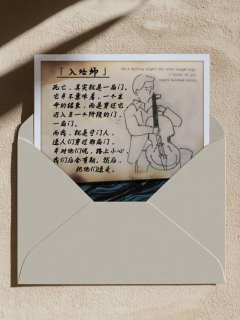 「入殓师」
死亡，其实就是一扇门，
它并不意味着，一个生
命的结束，而是穿过它
进入另一个阶段的门，
一扇门。
而我，就是守门人，
送人们穿过那扇门，
并对他们说，路上小心，
我们后会有期。然后，
把他们送走。